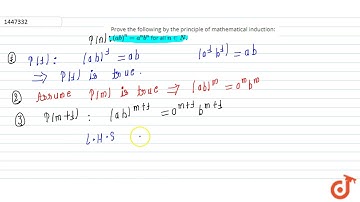 1447332
Prove the following by the principle of mathematical induction:
P(n) : (ab)^n = a^n b^n for all n ∈ N.
① P(1) : (ab)^1 = ab (a^1 b^1) = ab
⇒ P(1) is true.
② Assume P(m) is true ⇒ (ab)^m = a^m b^m
③ P(m+1) : (ab)^{m+1} = a^{m+1} b^{m+1}
L.H.S